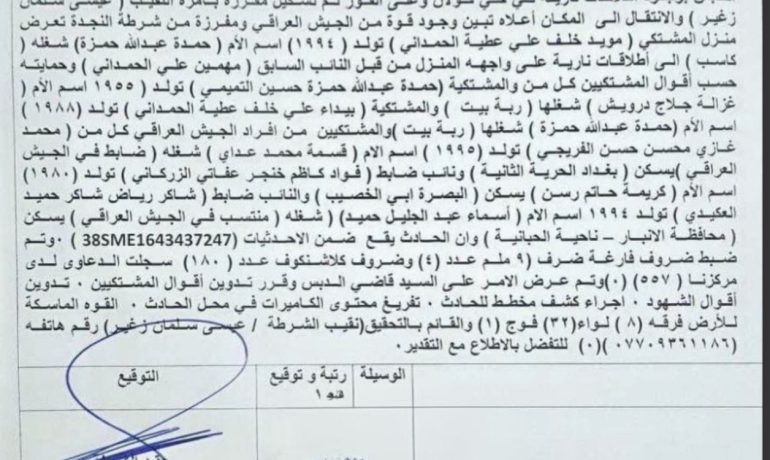 زغير ) والانتقال الى المكان أعلاه تبين وجود قوة من الجيش العراقي ومفرزة من شرطة النجدة تعرض
منزل المشتكي ( مويد خلف علي عطية الحمداني ) تولد ( ١٩٩٤ ) اسم الأم ( حمدة عبدالله حمزة) شغله (
كاسب ) الى أطلاقات نارية على واجهه المنزل من قبل النائب السابق ( مهمين علي الحمداني ) وحمايته
حسب أقوال المشتكيين كل من والمشتكية (حمدة عبدالله حمزة حسين التميمي ) تولد ( ١٩٥٥ اسم الأم (
غزالة جلاج درويش ) شغلها ( ربة بيت ) والمشتكية ( بيداء علي خلف عطية الحمداني ) تولد (١٩٨٨ )
اسم الأم (حمدة عبدالله حمزة ) شغلها ( ربة بيت )والمشتكيين من افراد الجيش العراقي كل من ( محمد
غازي محسن حسن الفريجي ) تولد (١٩٩٥ ) اسم الام ( قسمة محمد عداي ) شغله ( ضابط في الجيش
العراقي )يسكن ( بغداد الحرية الثانية ) ونائب ضابط ( فواد كاظم خنجر عفاتي الزركاني ) تولد (١٩٨٠)
اسم الأم ( كريمة حاتم رسن ) يسكن ( البصرة ابي الخصيب ) والنائب ضابط ( شاكر رياض شاكر حميد
العكيدي ) تولد ١٩٩٤ اسم الام ( أسماء عبد الجليل حميد) ( شغله ( منتسب في الجيش العراقي ) يسكن
( محافظة الانبار – ناحية الحبانية ) وان الحادث يقع ضمن الاحدثيات (38SME1643437247 ) ٠وتم
ضبط ضروف فارغة ضرف (٩ ملم عدد (٤) وضروف كلاشنكوف عدد ( ١٨٠ ) سجلت الدعاوى لدى
مركزنا ( ٥٥٧ )(٠)وتم عرض الامر على السيد قاضي الدبس وقرر تدوين أقوال المشتكيين ٠ تدوين
أقوال الشهود ٠ اجراء كشف مخطط للحادث ٠ تفريغ محتوى الكاميرات في محل الحادث ٠ القوه الماسكة
للأرض فرقه (٨ ) لواء(٣٢) فوج (١) والقائم بالتحقيق(نقيب الشرطة / عيسى سلمان زغير) رقم هاتفه
(٠٧٧٠٩٣٦١١٨٦ )(٠) للتفضل بالاطلاع مع التقدير٠
الوسيلة رتبة و توقيع التوقيع